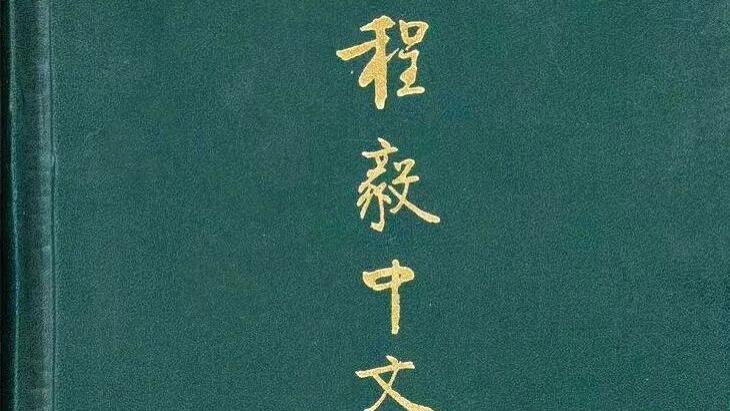 程毅中文